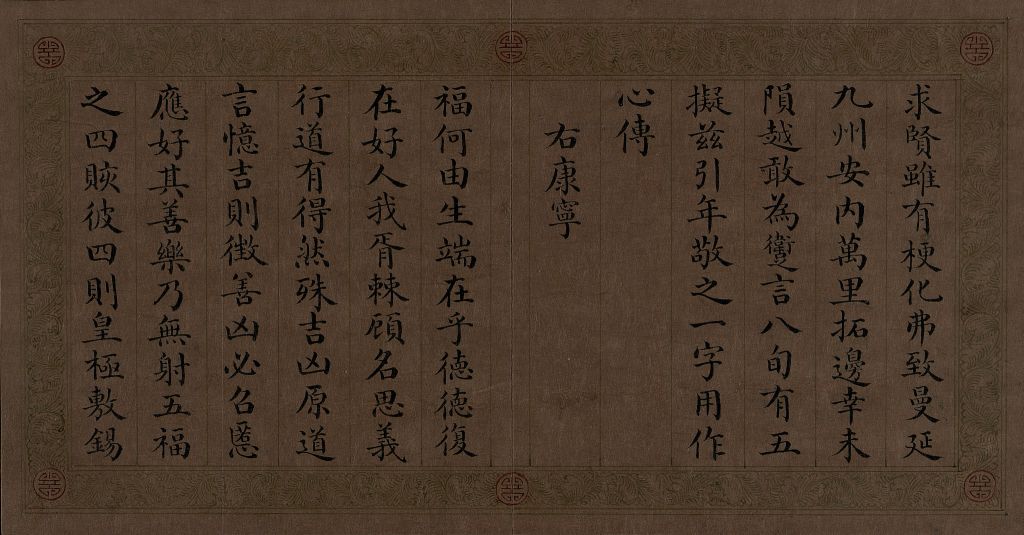 求賢雖有梗化弗致曼延
九州安内萬里拓邊幸未
隕越敢為躗言八旬有五
擬兹引年敬之一字用作
心傳
右康寧
福何由生端在乎德德復
在好人我胥棘顧名思義
行道有得然殊吉凶原道
言憶吉則徴善凶必名慝
應好其善樂乃無射五福
之四陝彼四則皇極敷錫